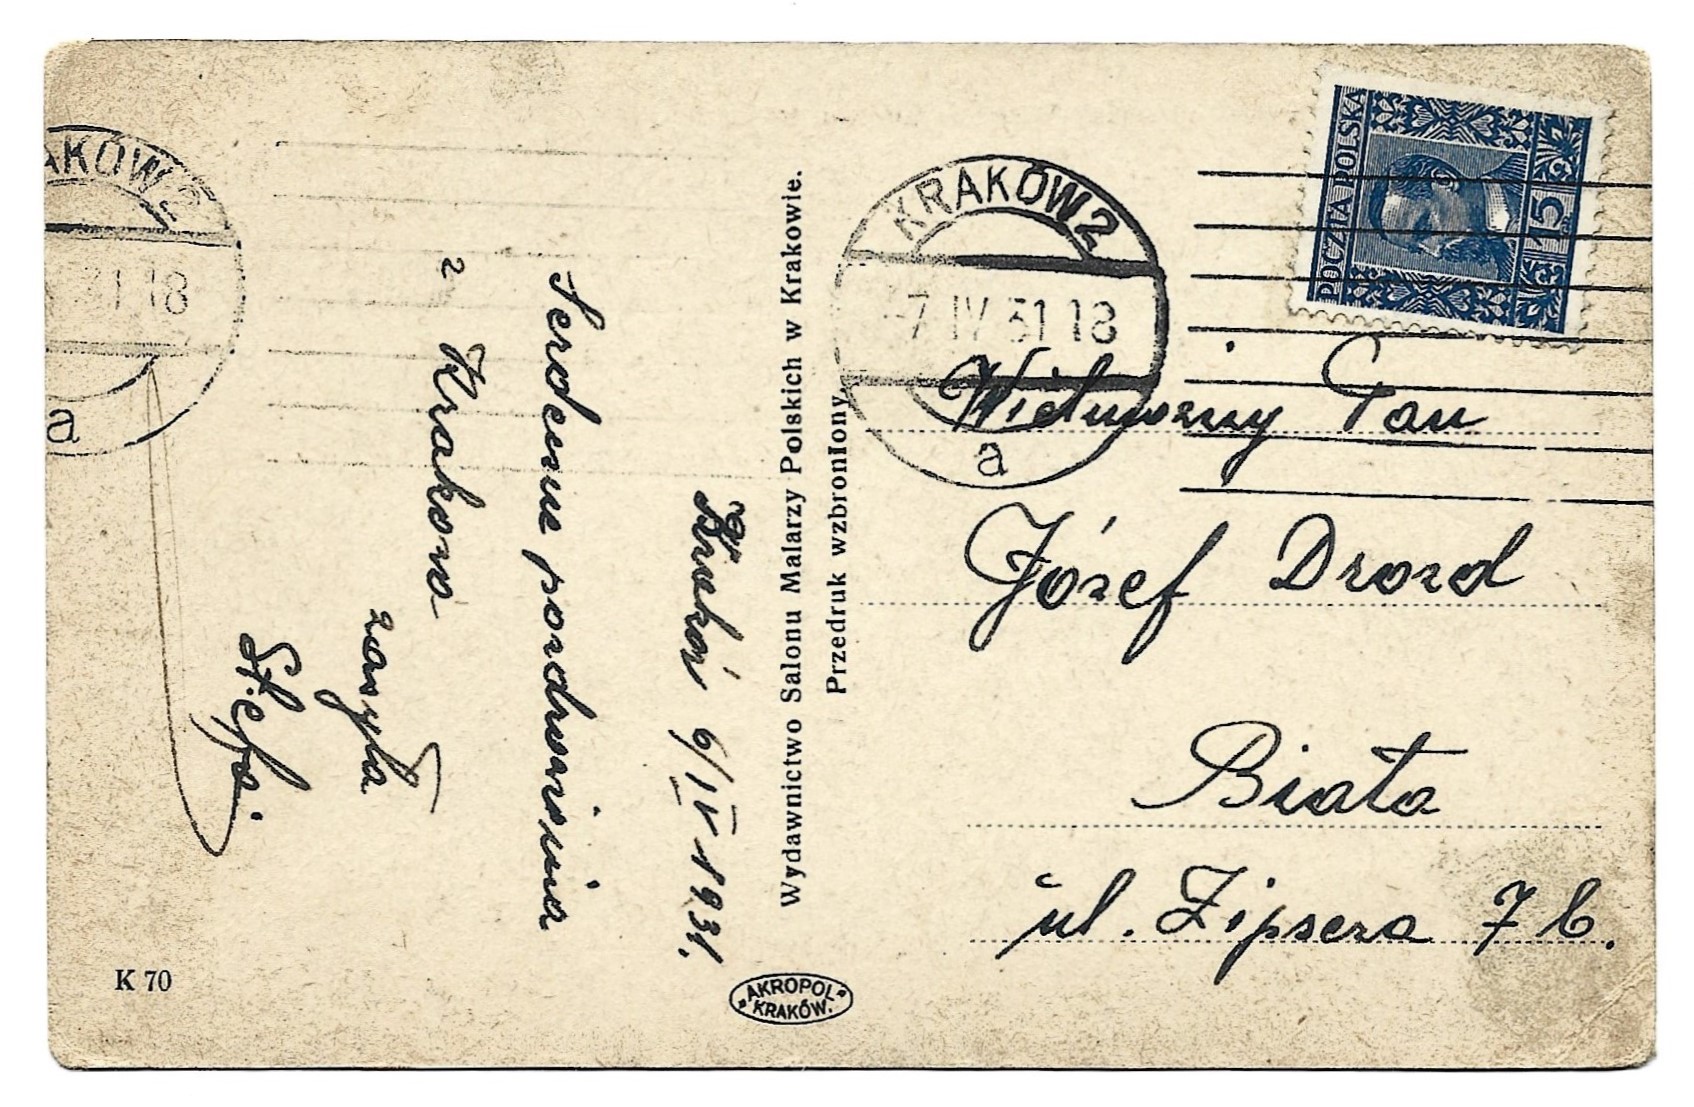 Kraków 6/IV 1931.
Serdeczne pozdrowienia
z Krakowa
zasyła
Stefa.
K 70
Wydawnictwo Salonu Malarzy Polskich w Krakowie.
Przedruk wzbroniony.
"AKROPOL"
KRAKÓW.
AKÓW 2
31 18
a
KRAKÓW 2
-7 IV 31 18
a
POCZTA POLSKA
15
Wielmożny Pan
Józef Drozd
Biała
ul. Zipsera 7 b.